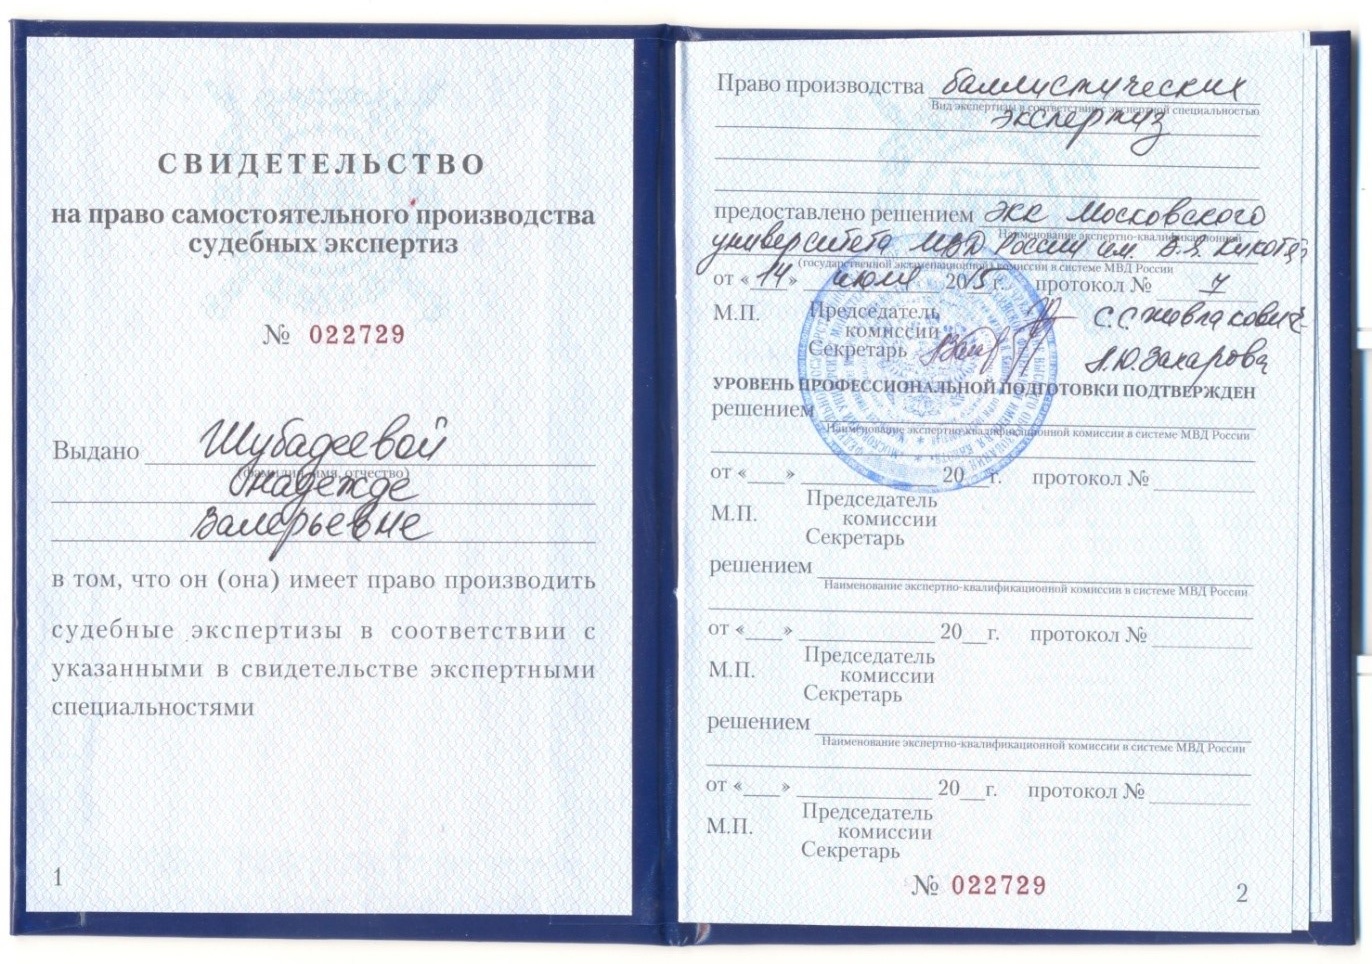 СВИДЕТЕЛЬСТВО
на право самостоятельного производства
судебных экспертиз
№ 022729
Выдано Шубадеевой
(фамилия, имя, отчество)
Надежде
Валерьевне
в том, что он (она) имеет право производить
судебные экспертизы в соответствии с
указанными в свидетельстве экспертными
специальностями
1
Право производства баллистических
Вид экспертизы в соответствии с экспертной специальностью
экспертиз
предоставлено решением ЭКК Московского
Наименование экспертно-квалификационной
университета МВД России им. В.Я. Кикотя
(государственной экзаменационной) комиссии в системе МВД России
от «14» июля 2015 г. протокол № 7
М.П. Председатель
комиссии С.С. Живлакович
Секретарь Л.Ю. Захарова
УРОВЕНЬ ПРОФЕССИОНАЛЬНОЙ ПОДГОТОВКИ ПОДТВЕРЖДЕН
решением
Наименование экспертно-квалификационной комиссии в системе МВД России
от «___» ____________ 20__г. протокол № ________
М.П. Председатель
комиссии
Секретарь
решением
Наименование экспертно-квалификационной комиссии в системе МВД России
от «___» ____________ 20__г. протокол № ________
М.П. Председатель
комиссии
Секретарь
решением
Наименование экспертно-квалификационной комиссии в системе МВД России
от «___» ____________ 20__г. протокол № ________
М.П. Председатель
комиссии
Секретарь
№ 022729
2